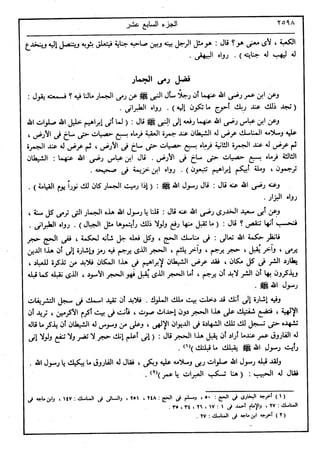 ٢٥٩٨ الجزء السابع عشر
الكعبة ، لأى معنى هو ؟ قال : هو مثل الرجل بينه وبين صاحبه جناية فيتعلق بثوبه ويتنصل إليه ويتخدع
له ليهب له جنايته ) . رواه البيهقى .
فضل رمى الجمار
وعن ابن عمر رضى الله عنهما أن رجلاً سأل النبى ﷺ عن رمى الجمار مالنا فيه ؟ فسمعته يقول :
( تجد ذلك عند ربك أحوج ما تكون إليه ) . رواه الطبرانى .
وعن ابن عباس رضى الله عنهما رفعه إلى النبى ﷺ قال : ( لما أتى إبراهيم خليل الله صلوات الله
عليه وسلامه المناسك عرض له الشيطان عند جمرة العقبة فرماه بسبع حصيات حتى ساخ فى الأرض ،
ثم عرض له عند الجمرة الثانية فرماه بسبع حصيات حتى ساخ فى الأرض . ثم عرض له عند الجمرة
الثالثة فرماه بسبع حصيات حتى ساخ فى الأرض . قال ابن عباس رضى الله عنهما : الشيطان
ترجمون ، وملة أبيكم إبراهيم تتبعون ) . رواه ابن خزيمة فى صحيحه .
وعنه رضى الله عنه قال : قال رسول الله ﷺ : ( إذا رميت الجمار كان لك نوراً يوم القيامة ) .
رواه البزار .
وعن أبى سعيد الخدرى رضى الله عنه قال : قلنا يا رسول الله هذه الجمار التى ترمى كل سنة ،
فنحسب أنها تنقص ؟ قال : ( ما تقبل منها رفع ولولا ذلك رأيتموها مثل الجبال ) . رواه الطبرانى .
فانظر حكمة الله تعالى : فى مناسك الحج ، وكل فعله جل شأنه لحكمة ، ففى الحج حجر
يرمى ، وآخر يُقبل ، حجر يرجم ، وآخر يلثم ، الحجر الذى يرجم فيه رمز وإشارة إلى أن هذا الدين
يطارد الشر فى كل مكان ، فقد عرض الشيطان لإبراهيم فى هذا المكان فلابد من تذكرة للعباد ،
ويذكرون بها أن الشر لابد أن يرجم ، أما الحجر الذى يُقبل فهو الحجر الأسود ، الذى نقبله كما قبله
رسول الله ﷺ .
وفيه إشارة إلى أنك قد دخلت بيت ملك الملوك . فلابد أن تقيد اسمك فى سجل التشريفات
الإلهية ، فتضع شفتيك على هذا الحجر دون إحداث صوت ، فأنت فى بيت أكرم الأكرمين ، تريد أن
تشهده حتى تسجل لك تلك الشهادة فى الديوان الإلهى ، وعلى من وسوس له الشيطان أن يذكر ما قاله
له الفاروق عمر عندما أراد أن يقبل هذا الحجر قال : ( إنى أعلم إنك حجر لا تضر ولا تنفع ولولا إنى
رأيت رسول الله ﷺ يقبلك ما قبلتك )(١) .
ولقد قبله رسول الله صلوات ربى وسلامه عليه وبكى ، فقال له الفاروق ما يبكيك يا رسول الله .
فقال له الحبيب : ( هنا تسكب العبرات يا عمر )(٢) .
(١) أخرجه البخارى فى الحج : ٥٠ ، ومسلم فى الحج : ٢٤٨ ، ٢٥١ ، والنسائى فى المناسك : ١٤٧ ، وابن ماجه فى
المناسك : ٢٧ ، والإمام أحمد فى ١ : ١٧ ، ٢١ ، ٢٦ ، ٣٤ ، ٣٥ .
(٢) أخرجه ابن ماجه فى المناسك : ٢٧ .